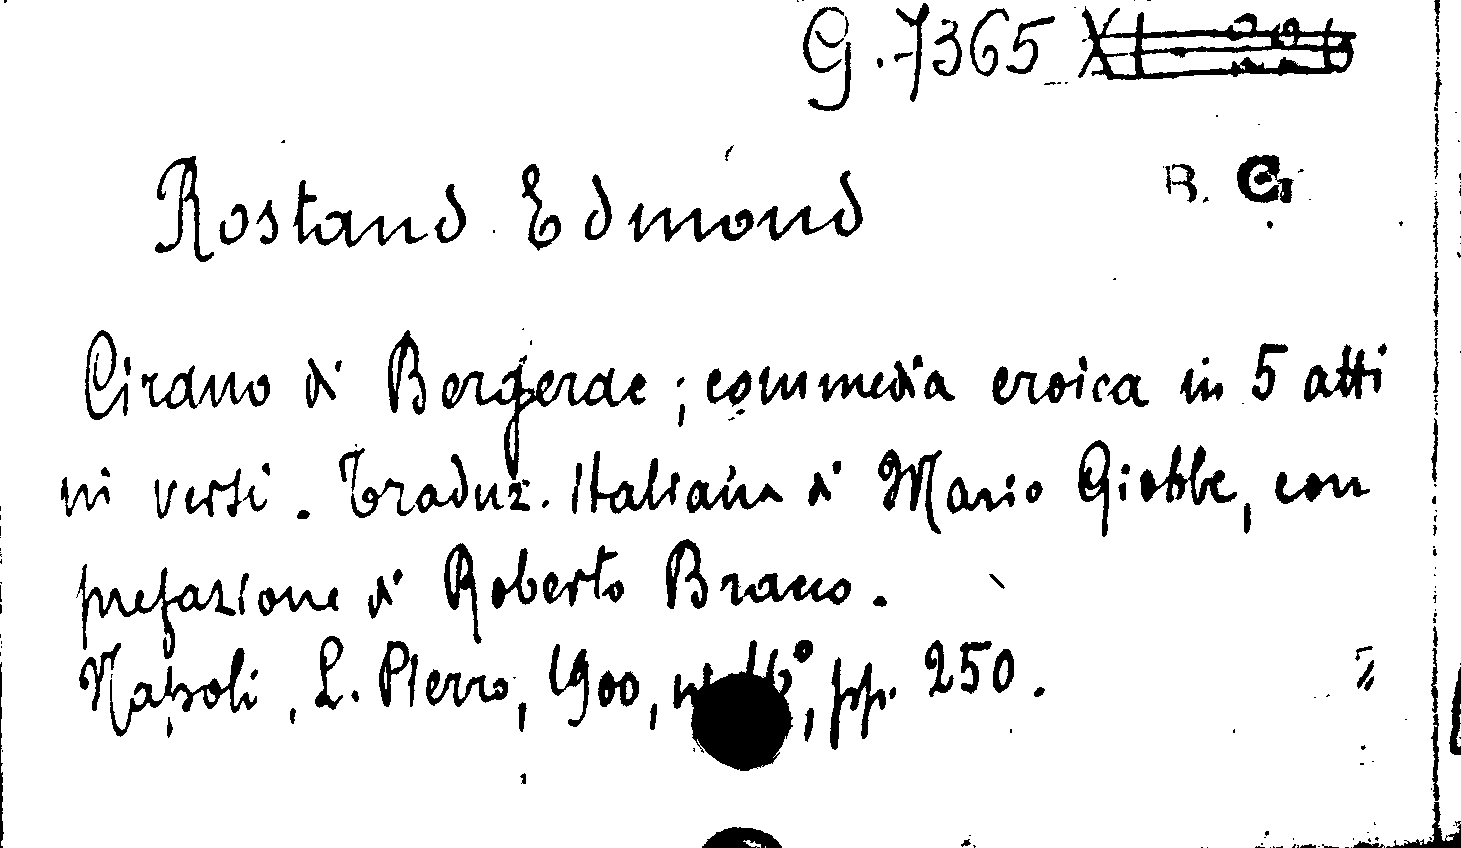 G. 7365
R. G.
Rostand Edmond
Cirano di Bergerac; commedia eroica in 5 atti
in versi. Traduz. Italiana di Mario Giobbe, con
prefazione di Roberto Bracco.
Napoli, L. Pierro, 1900, in 16°, pp. 250.